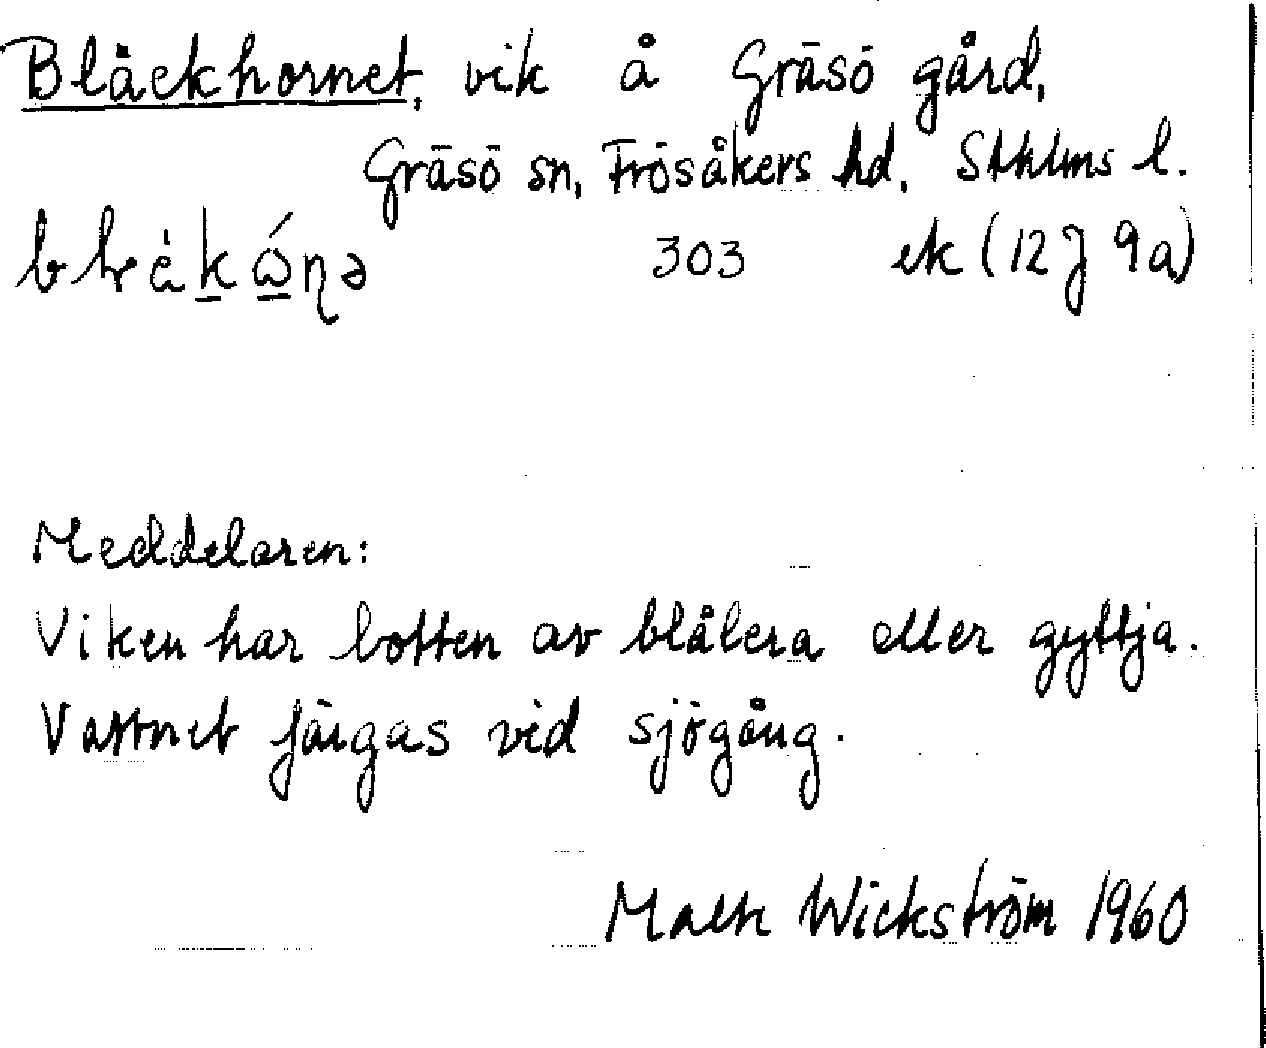 Bläckhornet, vik å Gräsö gård,
Gräsö sn, Frösåkers hd, Sthlms l.
303 ek (12J 9a)
Meddelaren:
Viken har botten av blålera eller gyttja.
Vattnet färgas vid sjögång.
Wickström 1960